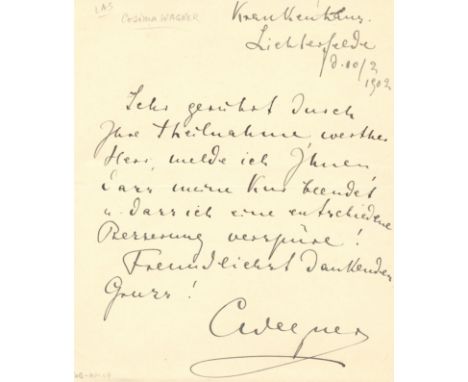 LAS
COSIMA WAGNER
Krankenhaus
Lichterfelde
d. 10/2
1902
Sehr gerührt durch
Ihre Theilnahme werther
Herr, melde ich Ihnen,
dass meine Kur beendet
u. dass ich eine entschiedene
Besserung verspüre!
Freundlichst dankender
Gruss!
CWagner